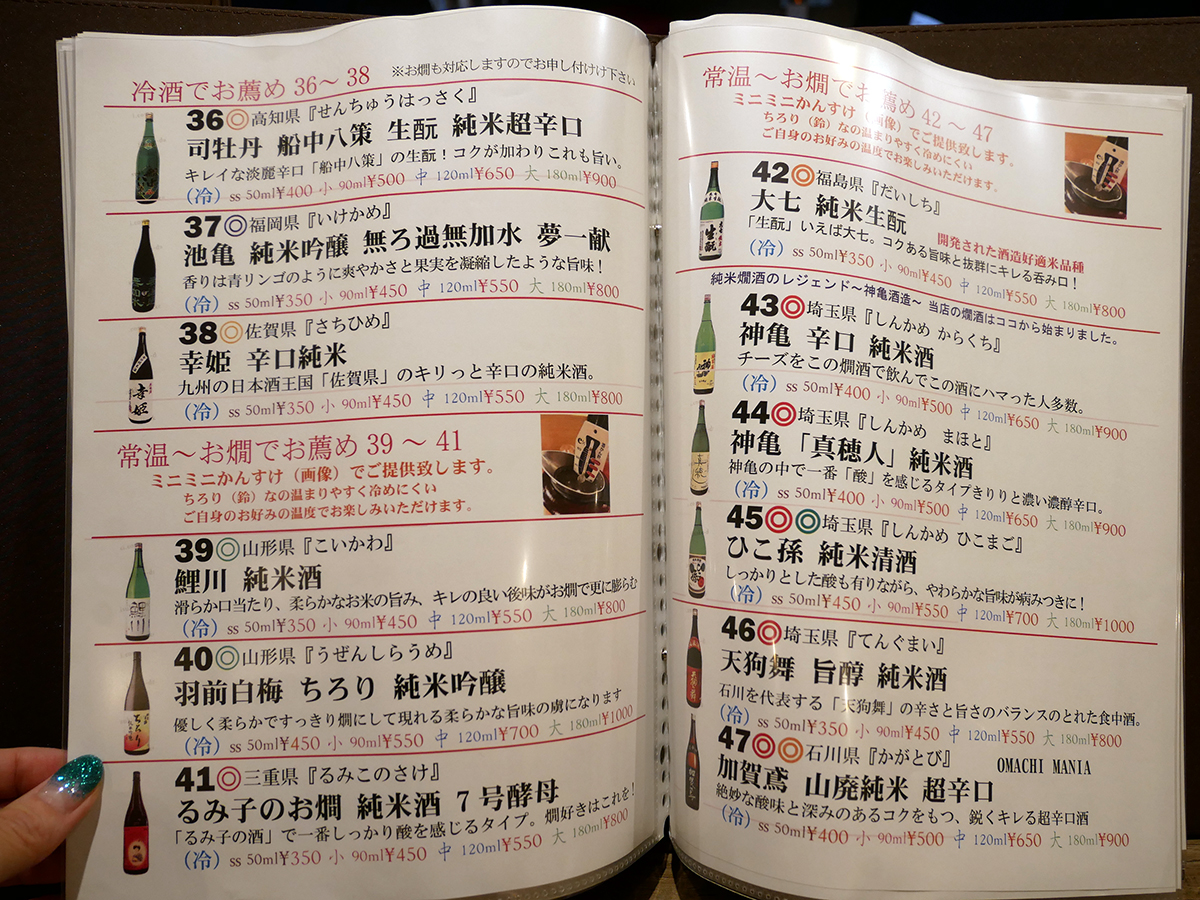 冷酒でお薦め 36～38 ※お燗も対応しますのでお申し付け下さい
36◎高知県『せんちゅうはっさく』
司牡丹 船中八策 生酛 純米超辛口
キレイな淡麗辛口「船中八策」の生酛！コクが加わりこれも旨い。
（冷） ss 50ml¥400 小 90ml¥500 中 120ml¥650 大 180ml¥900
37◎福岡県『いけかめ』
池亀 純米吟醸 無ろ過無加水 夢一献
香りは青リンゴのように爽やかさと果実を凝縮したような旨味！
（冷） ss 50ml¥350 小 90ml¥450 中 120ml¥550 大 180ml¥800
38◎佐賀県『さちひめ』
幸姫 辛口純米
九州の日本酒王国「佐賀県」のキリっと辛口の純米酒。
（冷） ss 50ml¥350 小 90ml¥450 中 120ml¥550 大 180ml¥800
常温～お燗でお薦め 39～41
ミニミニかんすけ（画像）でご提供致します。
ちろり（鈴）なの温まりやすく冷めにくい
ご自身のお好みの温度でお楽しみいただけます。
39◎山形県『こいかわ』
鯉川 純米酒
滑らか口当たり、柔らかなお米の旨み、キレの良い後味がお燗で更に膨らむ
（冷） ss 50ml¥350 小 90ml¥450 中 120ml¥550 大 180ml¥800
40◎山形県『うぜんしらうめ』
羽前白梅 ちろり 純米吟醸
優しく柔らかですっきり燗にして現れる柔らかな旨味の虜になります
（冷） ss 50ml¥450 小 90ml¥550 中 120ml¥700 大 180ml¥1000
41◎三重県『るみこのさけ』
るみ子のお燗 純米酒 7号酵母
「るみ子の酒」で一番しっかり酸を感じるタイプ。燗好きはこれを！
（冷） ss 50ml¥350 小 90ml¥450 中 120ml¥550 大 180ml¥800
常温～お燗でお薦め 42～47
ミニミニかんすけ（画像）でご提供致します。
ちろり（鈴）なの温まりやすく冷めにくい
ご自身のお好みの温度でお楽しみいただけます。
42◎福島県『だいしち』
大七 純米生酛
開発された酒造好適米品種
「生酛」いえば大七。コクある旨味と抜群にキレる呑み口！
（冷） ss 50ml¥350 小 90ml¥450 中 120ml¥550 大 180ml¥800
純米燗酒のレジェンド～神亀酒造～ 当店の燗酒はココから始まりました。
43◎埼玉県『しんかめ からくち』
神亀 辛口 純米酒
チーズをこの燗酒で飲んでこの酒にハマった人多数。
（冷） ss 50ml¥400 小 90ml¥500 中 120ml¥650 大 180ml¥900
44◎埼玉県『しんかめ まほと』
神亀「真穂人」純米酒
神亀の中で一番「酸」を感じるタイプきりりと濃い濃醇辛口。
（冷） ss 50ml¥400 小 90ml¥500 中 120ml¥650 大 180ml¥900
45◎◎埼玉県『しんかめ ひこまご』
ひこ孫 純米清酒
しっかりとした酸も有りながら、やわらかな旨味が病みつきに！
（冷） ss 50ml¥450 小 90ml¥550 中 120ml¥700 大 180ml¥1000
46◎埼玉県『てんぐまい』
天狗舞 旨醇 純米酒
石川を代表する「天狗舞」の辛さと旨さのバランスのとれた食中酒。
（冷） ss 50ml¥350 小 90ml¥450 中 120ml¥550 大 180ml¥800
47◎◎石川県『かがとび』 OMACHI MANIA
加賀鳶 山廃純米 超辛口
絶妙な酸味と深みのあるコクをもつ、鋭くキレる超辛口酒
（冷） ss 50ml¥400 小 90ml¥500 中 120ml¥650 大 180ml¥900